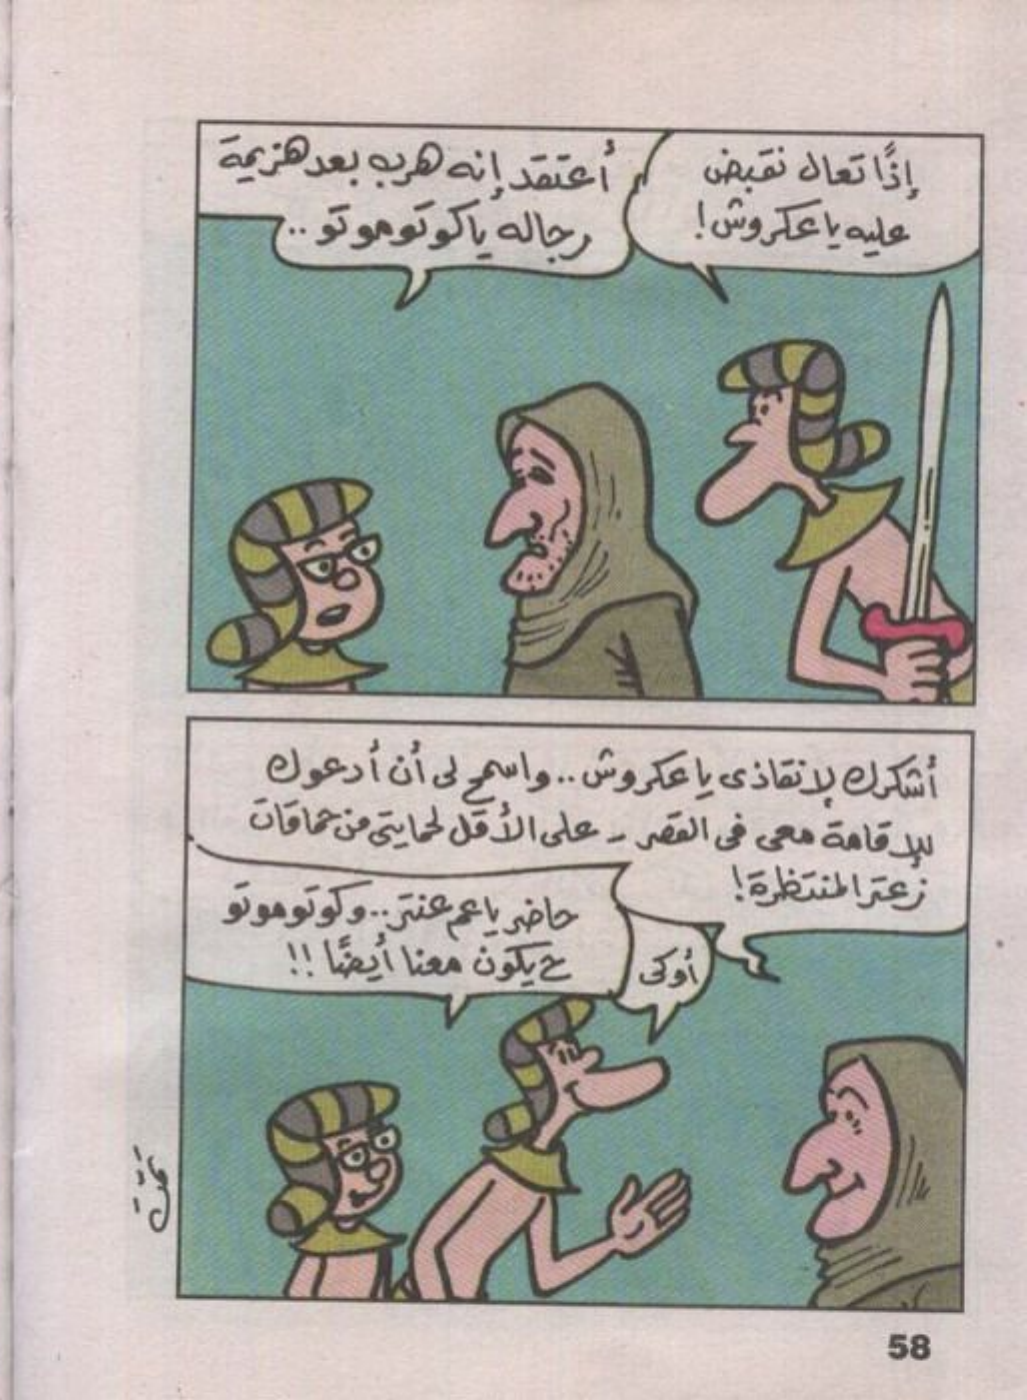 إذًا تعال نقبض
عليه يا عكروش!
أعتقد إنه هرب بعد هزيمة
رجاله يا كوتوموتو ..
أشكرك لإنقاذى يا عكروش .. واسمح لى أن أدعوك
للإقامة معى فى القصر - على الأقل لحمايتى من حماقات
زعتر المنتظرة!
أوكى
حاضر يا عم عنتر .. وكوتوموتو
ح يكون معنا أيضًا !!
58